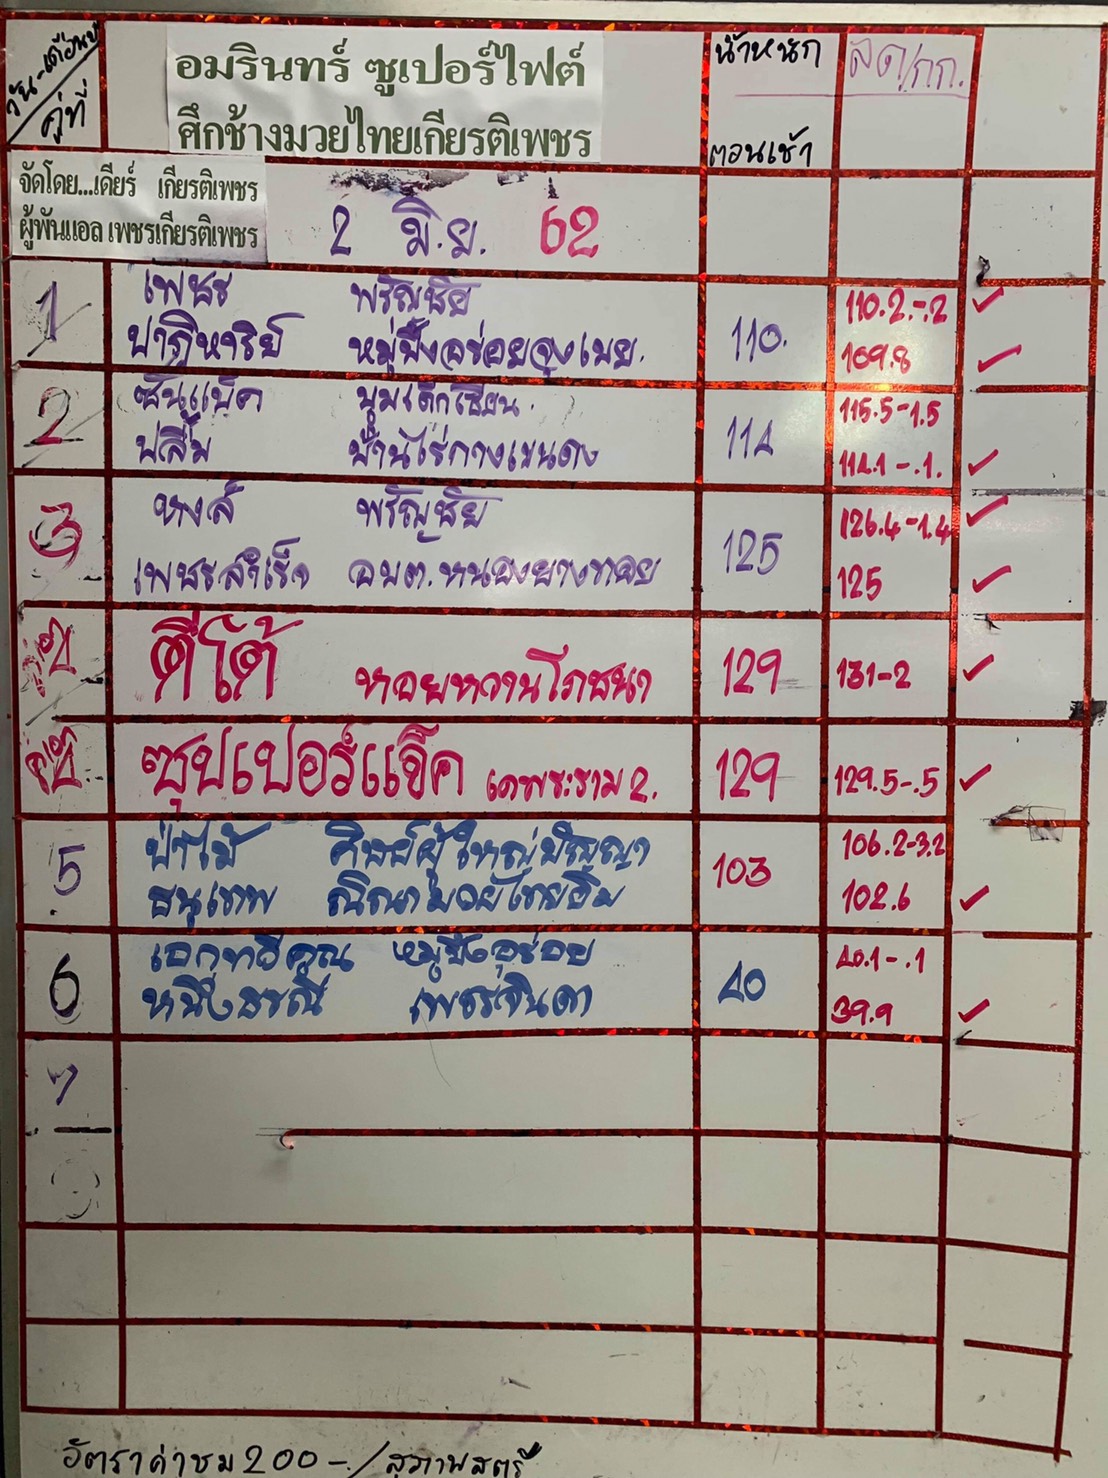 วัน-เดือน-ปี
คู่ที่
อมรินทร์ ซูเปอร์ไฟต์
ศึกช้างมวยไทยเกียรติเพชร
น้ำหนัก
ตอนเช้า
ลด/กก.
จัดโดย...เดียร์ เกียรติเพชร
ผู้พันแอล เพชรเกียรติเพชร
2 มิ.ย. 62
1 เพชร พรัญชัย 110. 110.2-.2 ✓
ปาฏิหาริย์ หมูปิ้งอร่อยจุงเบย. 109.8 ✓
2 ซันแบ็ค นุมเด็กเซียน. 114 115.5-1.5
ปลื้ม บ้านไร่กางเขนดง 114.1-.1. ✓
3 หงส์ พรัญชัย 125 126.4-1.4 ✓
เพชรสำเร็จ อบต.หนองยางทอย 125 ✓
คู่ ตีโต้ หอยหวานโภชนา 129 131-2 ✓
ซุปเปอร์แจ็ค เดพระราม 2. 129 129.5-.5 ✓
5 ป่าไม้ ศิษย์ผู้ใหญ่ปัญญา 103 106.2-3.2
ธนูเทพ ณิณามวยไทยยิม 102.6 ✓
6 เอกทวีคูณ หมูปิ้งอร่อย 40 40.1-.1
หนึ่งธรณี เพชรจินดา 39.9 ✓
7
อัตราค่าชม 200-/สุภาพสตรี